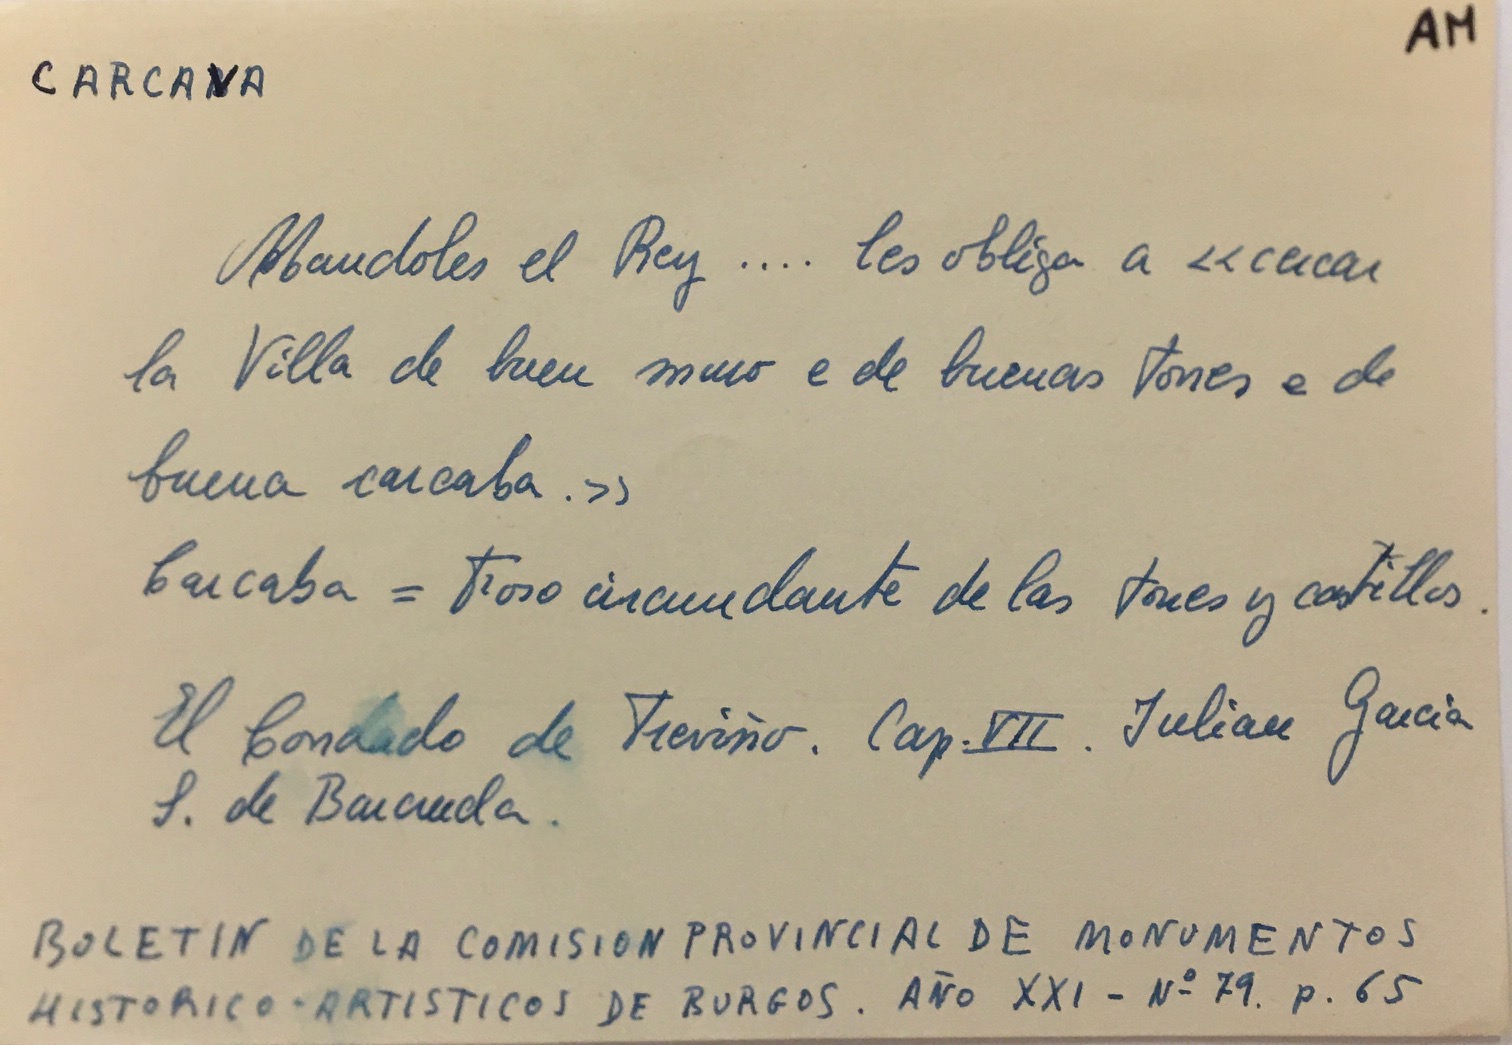 AM
CARCAVA
Mandoles el Rey .... les obliga a <<cercar
la Villa de buen muro e de buenas torres e de
buena carcaba.>>
Carcaba = Foso circundante de las torres y castillos.
El Condado de Treviño. Cap. VII. Julian Garcia
S. de Baranda.
BOLETIN DE LA COMISION PROVINCIAL DE MONUMENTOS
HISTORICO-ARTISTICOS DE BURGOS. AÑO XXI - Nº 79. p. 65